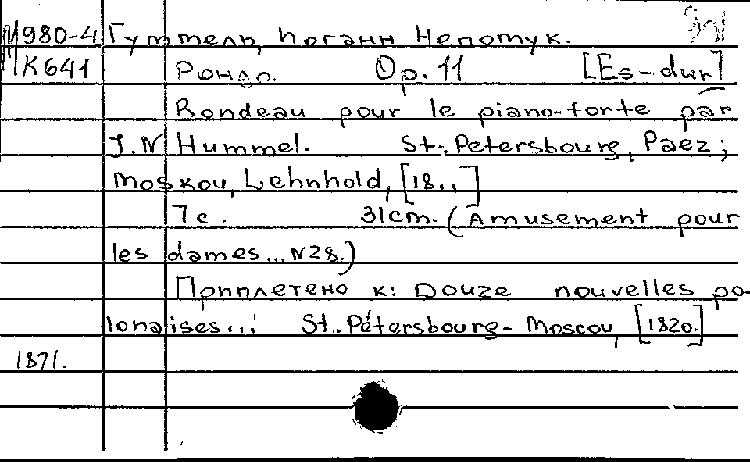 М980-4 Гуммель, Иоганн Непомук.
К641 Рондо. Op. 11 [Es-dur]
Rondeau pour le piano-forte par
J. N Hummel. St.-Petersbourg, Paez;
Moskou, Lehnhold, [18..]
7 с. 31cm. (Amusement pour
les dames... N28.)
Приплетено к: Douze nouvelles po-
lonaises... St.-Pétersbourg-Moscou, [1820.]
1871.